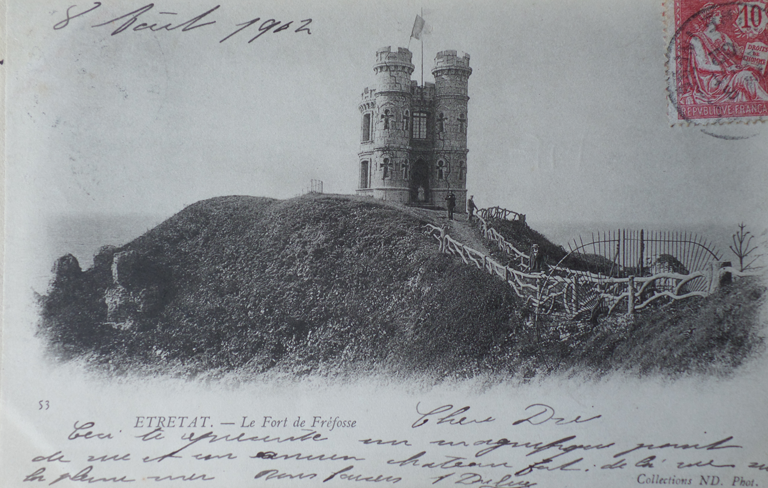 8 Août 1902
10
RÉPUBLIQUE FRANÇA
53
ETRETAT. — Le Fort de Fréfosse
Chère
Ceci te représente un magnifique point
de vue et un ancien chateau fort. de là vue sur
la pleine mer nous
Collections ND. Phot.